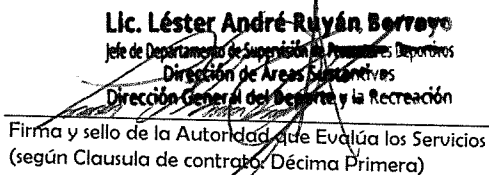 Lic. Léster André Ruyán Borrayo
Jefe de Departamento de Supervisión de Promotores Deportivos
Dirección de Áreas Sustantivas
Dirección General del Deporte y la Recreación
Firma y sello de la Autoridad que Evalúa los Servicios
(según Clausula de contrato: Décima Primera)